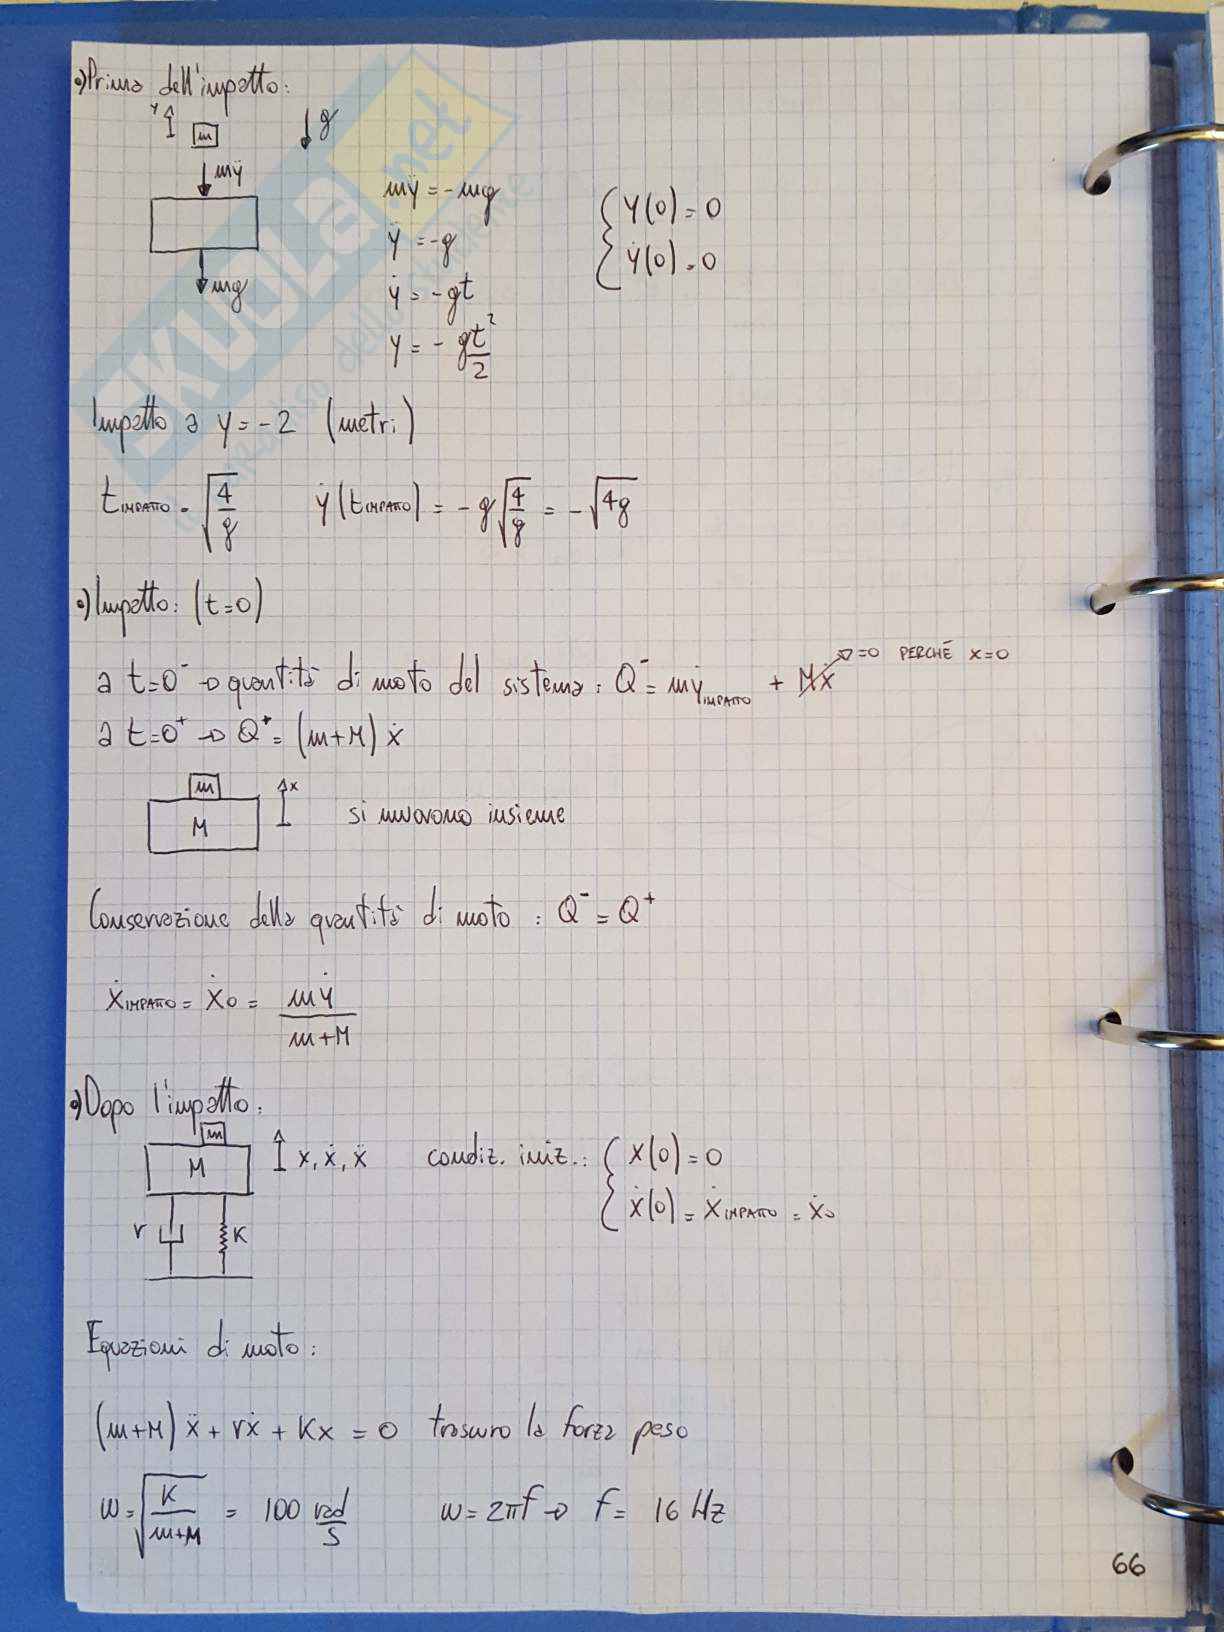 •) Prima dell'impatto:
y m g
mÿ
mÿ = -mg { y(0) = 0
ÿ = -g ẏ(0) = 0
mg ẏ = -gt
y = - gt²/2
Impatto a y = -2 (metri)
t_IMPATTO = √(4/g) ẏ(t_IMPATTO) = -g√(4/g) = -√(4g)
•) Impatto: (t=0)
=0 PERCHÉ x=0
a t=0⁻ → quantità di moto del sistema: Q⁻ = mẏ_IMPATTO + Mẋ
a t=0⁺ → Q⁺ = (m+M) ẋ
m x
M si muovono insieme
Conservazione della quantità di moto: Q⁻ = Q⁺
ẋ_IMPATTO = ẋ₀ = mẏ/(m+M)
•) Dopo l'impatto:
m
M x, ẋ, ẍ condiz. iniz.: { x(0) = 0
ẋ(0) = ẋ_IMPATTO = ẋ₀
r K
Equazioni di moto:
(m+M) ẍ + rẋ + Kx = 0 trascuro la forza peso
ω = √(K/(m+M)) = 100 rad/s ω = 2πf → f = 16 Hz
66
SKUOLA.net